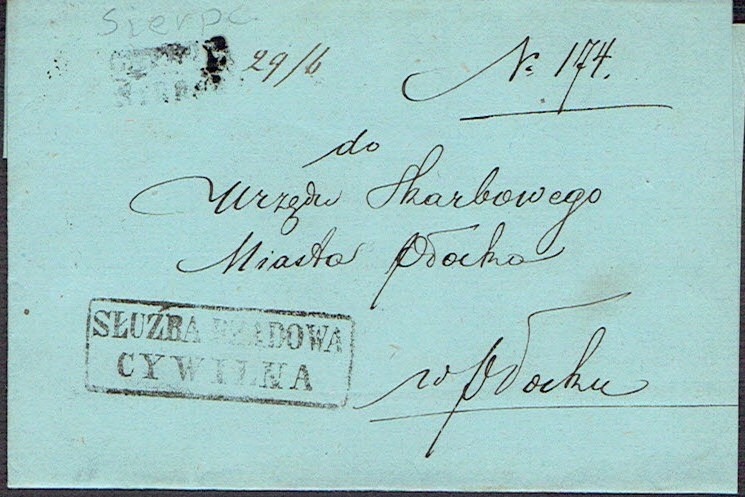 Sierpc
29/6 № 174.
do
Urzędu Skarbowego
Miasta Płocka
SŁUŻBA RZĄDOWA
CYWILNA
w Płocku